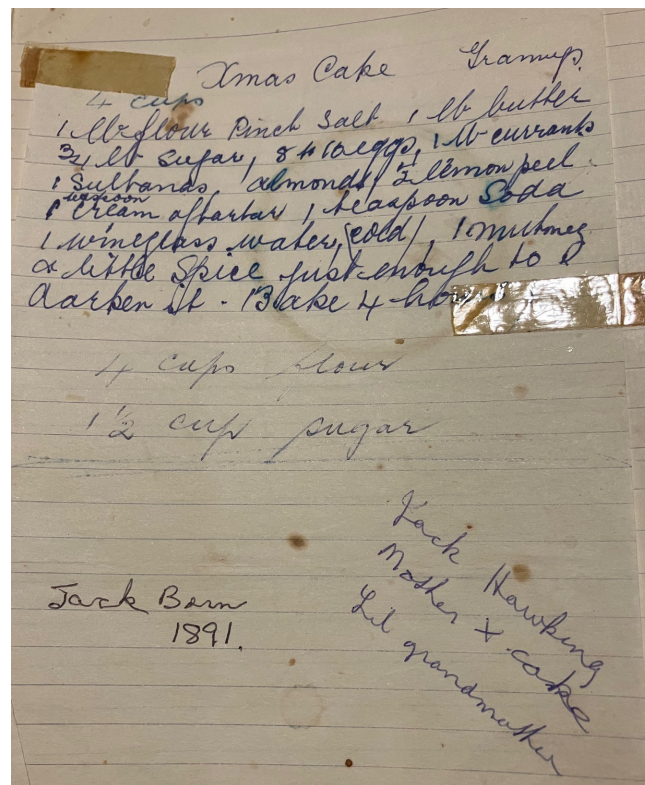 Xmas Cake Grannys.
4 cups
1 lb flour Pinch Salt 1 lb butter
3/4 lb Sugar, 8 to 10 eggs, 1 lb currants
1 Sultanas, almonds, 1/2 lemon peel
teaspoon
1 Cream of tartar 1 teaspoon Soda
1 wineglass water, (cold), 1 nutmeg
a little Spice just enough to
darken it - Bake 4
4 cups flour
1 1/2 cup sugar
Jack Hawking
Mother X cake
Lil grandmother
Jack Born
1891.